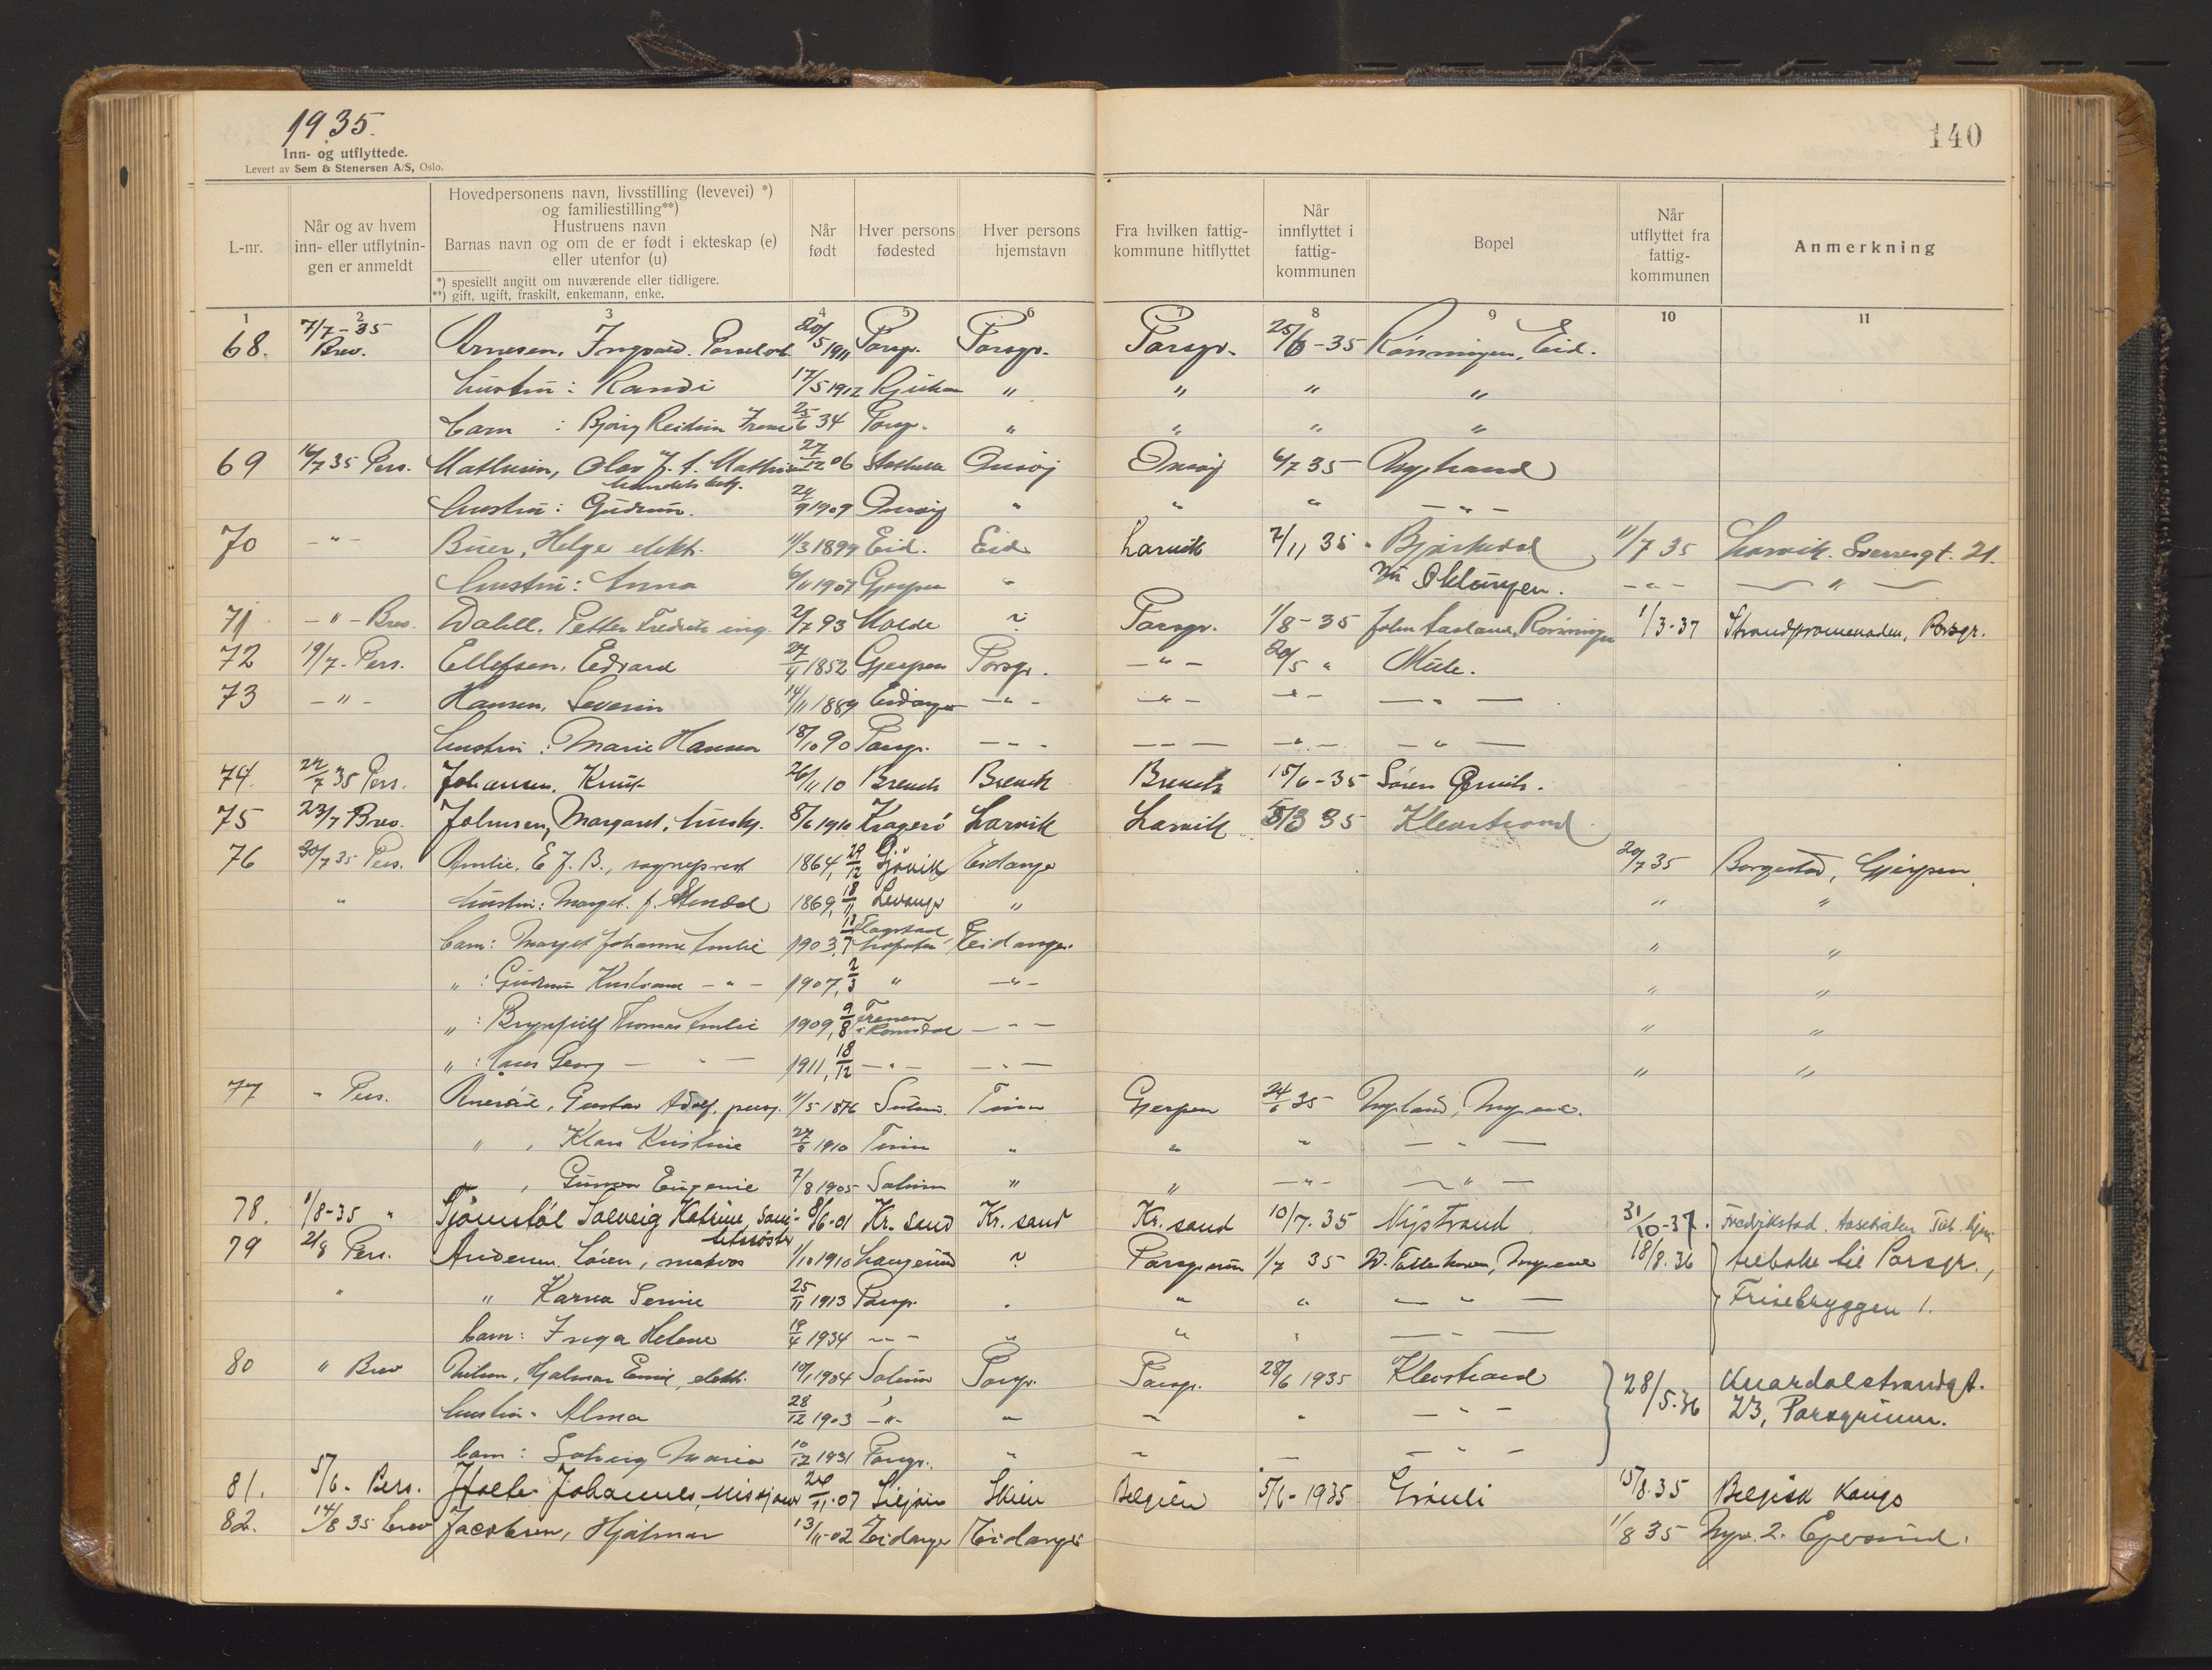 1935.
140
Inn- og utflyttede.
Levert av Sem & Stenersen A/S, Oslo.
L-nr. Når og av hvem inn- eller utflytningen er anmeldt Hovedpersonens navn, livsstilling (levevei) *) og familiestilling**) Hustruens navn Barnas navn og om de er født i ekteskap (e) eller utenfor (u) Når født Hver persons fødested Hver persons hjemstavn Fra hvilken fattigkommune hitflyttet Når innflyttet i fattigkommunen Bopel Når utflyttet fra fattigkommunen Anmerkning
*) spesiellt angitt om nuværende eller tidligere.
**) gift, ugift, fraskilt, enkemann, enke.
1 2 3 4 5 6 7 8 9 10 11
68. 7/7-35 Brev. Arnesen, Ingvald. 20/5 1911 Porsgr. Porsgr. Porsgr. 25/6-35 Rønningen, Eid.
hustru: Randi 17/5 1912 Rjukan " " " "
barn : Bjørg Reidun Irene 25/6 34 Porsgr. " " " "
69 16/7 35 Pers. Mathisen, Olav 27/12 06 Stathelle Onsøy Onsøy 6/7 35 Nystrand
hustru: Gudrun. 24/9 1909 Onsøy " " " - " -
70 - " - Buer, Helge elekt. 11/3 1899 Eid. Eid. Larvik 7/11 35 Bjørkedal 11/7 35 Larvik. Sverresgt. 21.
hustru: Anna 6/11 1907 Gjerpen " Oklungen. - " - - " -
71 - " - Brev. Dahll, Petter Fredrik ing. 2/7 93 Molde ? Porsgr. 1/8-35 John Aasland, Rønningen 1/3-37 Strandpromenaden, Porsgr.
72 19/7- Pers. Ellefsen, Edvard 27/4 1852 Gjerpen Porsgr. - " - 20/5 " Mule.
73 - " - Hansen, Severin 14/11 1889 Eidanger - " - - " - - " - - " -
hustru: Marie Hansen 18/10 90 Porsgr. - " - - " - - " - - " -
74. 22/7 35 Pers. Johansen, Knut 26/11 10 Brevik Brevik Brevik 15/6-35 Søren
75 23/7 Brev. Johnsen, Margaret, hush. 8/6 1910 Kragerø Larvik Larvik 35 Klevstrand
76 30/7 35 Pers. Amlie, E J. B., sogneprest 1864, 29/12 Gjøvik Eidanger 20/7 35 Borgestad, Gjerpen.
" hustru: Margit. f. 1869, 18/11 Levanger " " "
barn: Margit Johanne Amlie 1903, Flagstad Lofoten Eidanger " "
" : Gudrun - " - 1907, 2/3 " - " - " "
" : Brynjulf Thomas Amlie 1909, 9/8 Frænen i Romsdal - " - " "
" : Hans Georg - " - 1911, 18/12 - " - - " - " "
77 " Pers. Gustav Adolf, 11/5 1876 Tinn Gjerpen 24/6 35
" , Klara Kristine 27/3 1910 Tinn " " " - " -
" , Gunvor Eugenie 7/8 1905 Solum " " - " - - " -
78. 1/8-35 " Tjomstøl Solveig Katrine, 8/6-01 Kr. sand Kr. sand Kr. sand 10/7. 35 Nystrand 31/10-37. Fredrikstad.
79 21/8 Pers. Andersen, Søren, matros 1/10 1910 Langesund ? Porsgrunn 1/7 35 18/8. 36 tilbake til Porsgr.,
" " Karna Senne 25/11 1913 Porsgr. " " " - " - Frisebryggen 1.
barn: Inga Helene 19/4 1934 - " - " " " - " -
80 " Brev Nilsen, Hjalmar Emil, elekt. 10/1 1904 Solum Porsgr. Porsgr. 28/6 1935 Klevstrand 28/5.36 Knardalstrandgt.
hustru: Alma 28/12 1903 - " - " " " - " - 23, Porsgrunn.
barn: Solveig Marie 10/12 1931 Porsgr. " " - " -
81. 5/6- Pers. Johannes, misjonær 07 Siljan Skien Belgien 5/6-1935 Grønli 15/8. 35 Belgisk Kongo
82. 14/8 35 brev Jacobsen, Hjalmar 13/11-02 Eidanger Eidanger 1/8 35 2. Egersund.